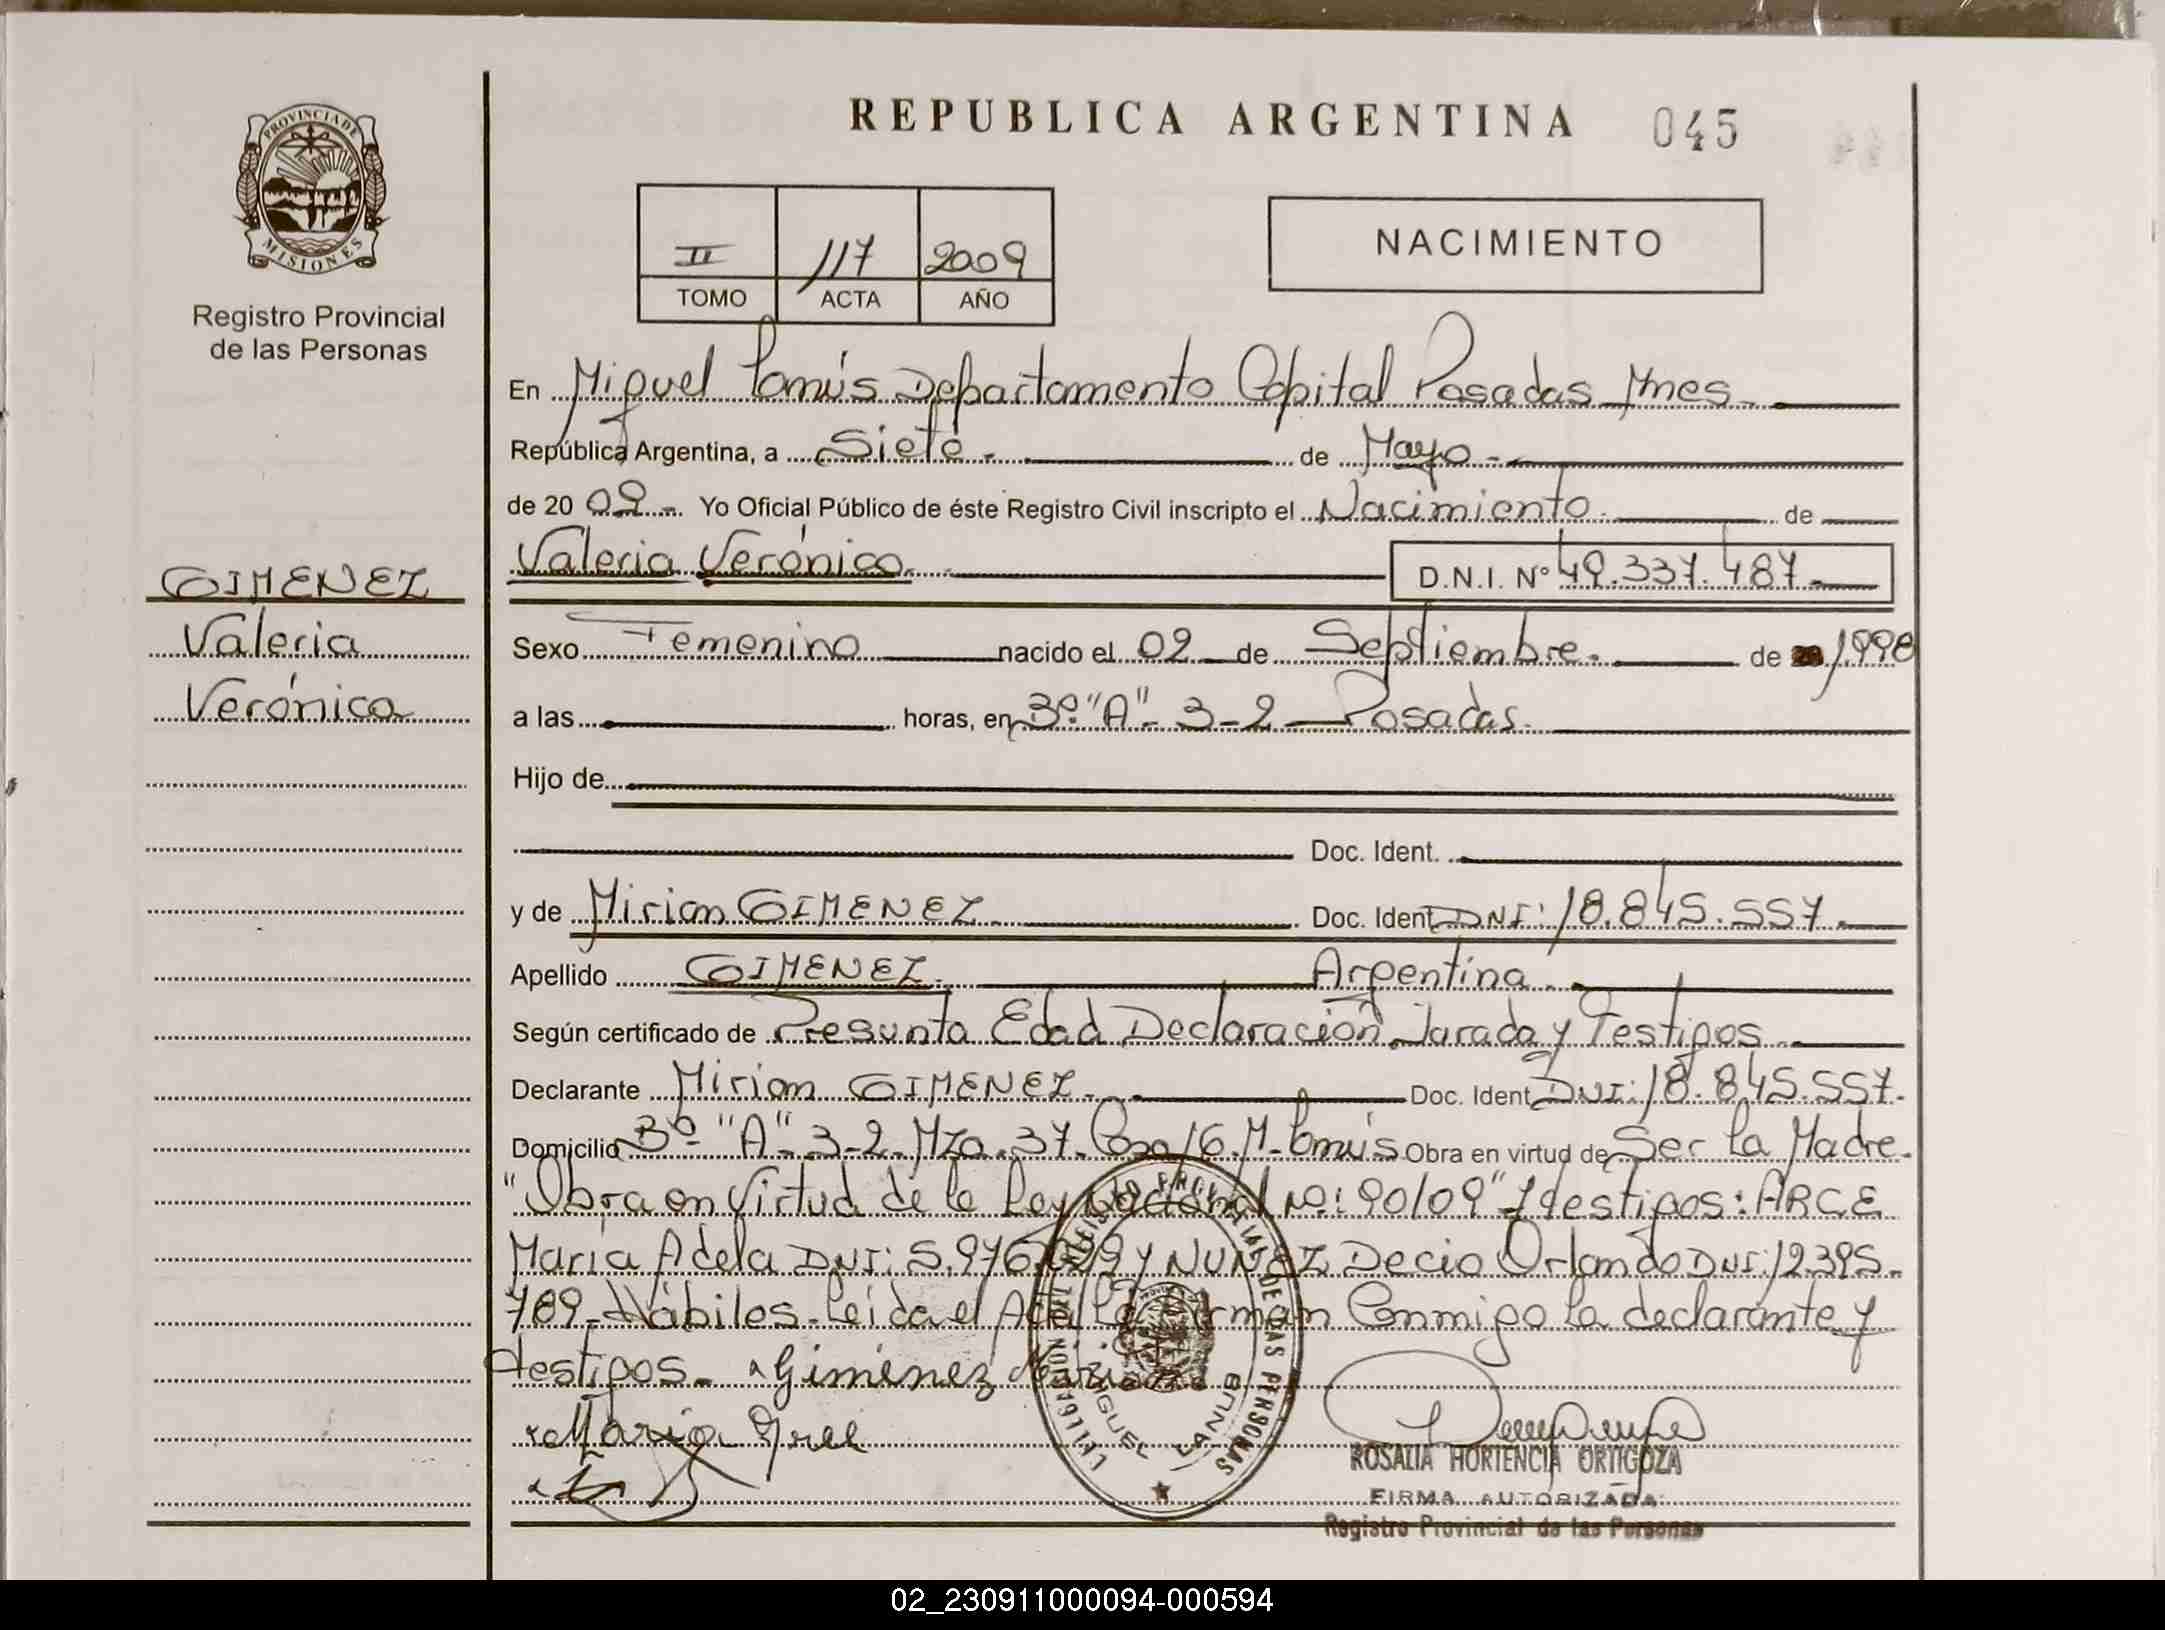 REPUBLICA ARGENTINA 045
PROVINCIA DE
MISIONES
Registro Provincial
de las Personas
II 117 2009
TOMO ACTA AÑO
NACIMIENTO
En Miguel Lanús Departamento Capital Posadas Mnes.
República Argentina, a Siete. de Mayo.
de 20 09. Yo Oficial Público de éste Registro Civil inscripto el Nacimiento. de
GIMENEZ
Valeria
Verónica
Valeria Verónica. D.N.I. N° 49.337.487.
Sexo Femenino nacido el 02 de Septiembre. de 1998
a las horas, en 3º "A" 3-2 Posadas.
Hijo de
Doc. Ident.
y de Mirian GIMENEZ Doc. Ident. DNI: 18.845.557.
Apellido GIMENEZ. Argentina.
Según certificado de Presunta Edad Declaración Jurada y Testigos.
Declarante Mirian GIMENEZ. Doc. Ident. DNI: 18.845.557.
Domicilio 3º "A" 3-2 Mza. 37 Casa 16. M. Lanús Obra en virtud de Ser La Madre.
"Obra en Virtud de la Ley Nacional Nº: 90/09" Testigos: ARCE
María Adela DNI: 5.976. y NUÑEZ Decio Orlando DNI: 12.395.
789. Hábiles. Leída el Acta La Firman Conmigo la declarante y
testigos. Giménez Mirian
María Arce
REGISTRO PROVINCIAL DE LAS PERSONAS
DELEGACION
MIGUEL LANUS
ROSALIA HORTENCIA ORTIGOZA
FIRMA AUTORIZADA
Registro Provincial de las Personas
02_230911000094-000594